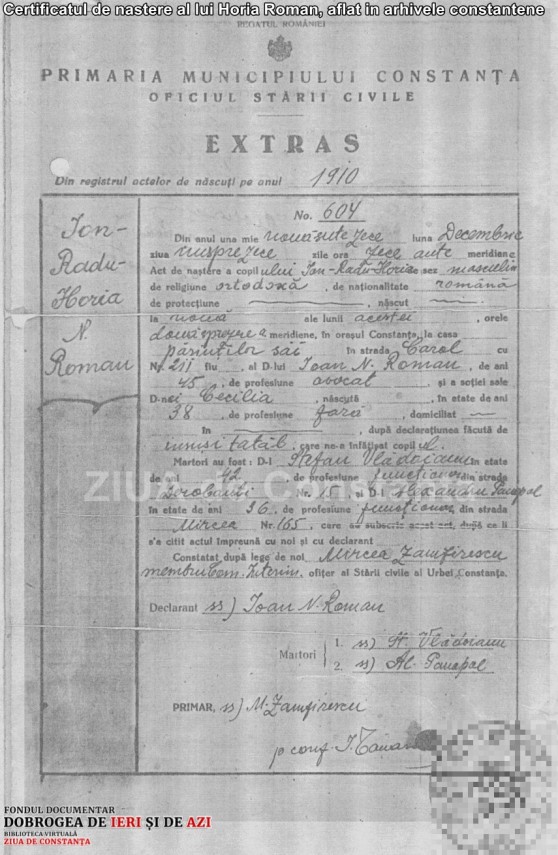 Certificatul de nastere al lui Horia Roman, aflat in arhivele constantene
REGATUL ROMÂNIEI
PRIMARIA MUNICIPIULUI CONSTANȚA
OFICIUL STĂRII CIVILE
EXTRAS
Din registrul actelor de născuți pe anul 1910
Ion-
Radu-
Horia
N.
Roman
No. 604
Din anul una mie nouăsute zece luna Decembrie
ziua unsprezece zile ora zece ante meridiene
Act de naștere a copilului Ion-Radu-Horia sex masculin
de religiune ortodoxă, de naționalitate română
de protecțiune , născut
la nouă ale lunii acestei, orele
meridiene, în orașul Constanța, la casa
părinților săi în strada Carol cu
Nr. 211 fiu al D-lui Ioan N. Roman, de ani
45, de profesiune avocat și a soției sale
D-nei Cecilia, născută , în etate de ani
38, de profesiune fără, domiciliat
în , după declarațiunea făcută de
însuși tatăl, care ne-a înfățișat copilul.
Martori au fost: D-l Ștefan Vlădoianu în etate
de ani 42, de profesiune funcționar din strada
Dorobanți Nr. și D-l Alexandru Panapol
în etate de ani 36, de profesiune funcționar din strada
Mircea Nr. 165, care au subscris acest act, după ce li
s'a citit actul împreună cu noi și cu declarant
Constatat după lege de noi Mircea Zamfirescu
membru Com. Interim. ofițer al Stării civile al Urbei Constanța.
Declarant ss) Ioan N. Roman
Martori
1. ss) Șt. Vlădoianu
2. ss) Al. Panapol
PRIMAR, ss) M. Zamfirescu
p. conf.
ZIUA de Constanța
FONDUL DOCUMENTAR
DOBROGEA DE IERI ȘI DE AZI
BIBLIOTECA VIRTUALĂ
ZIUA DE CONSTANȚA